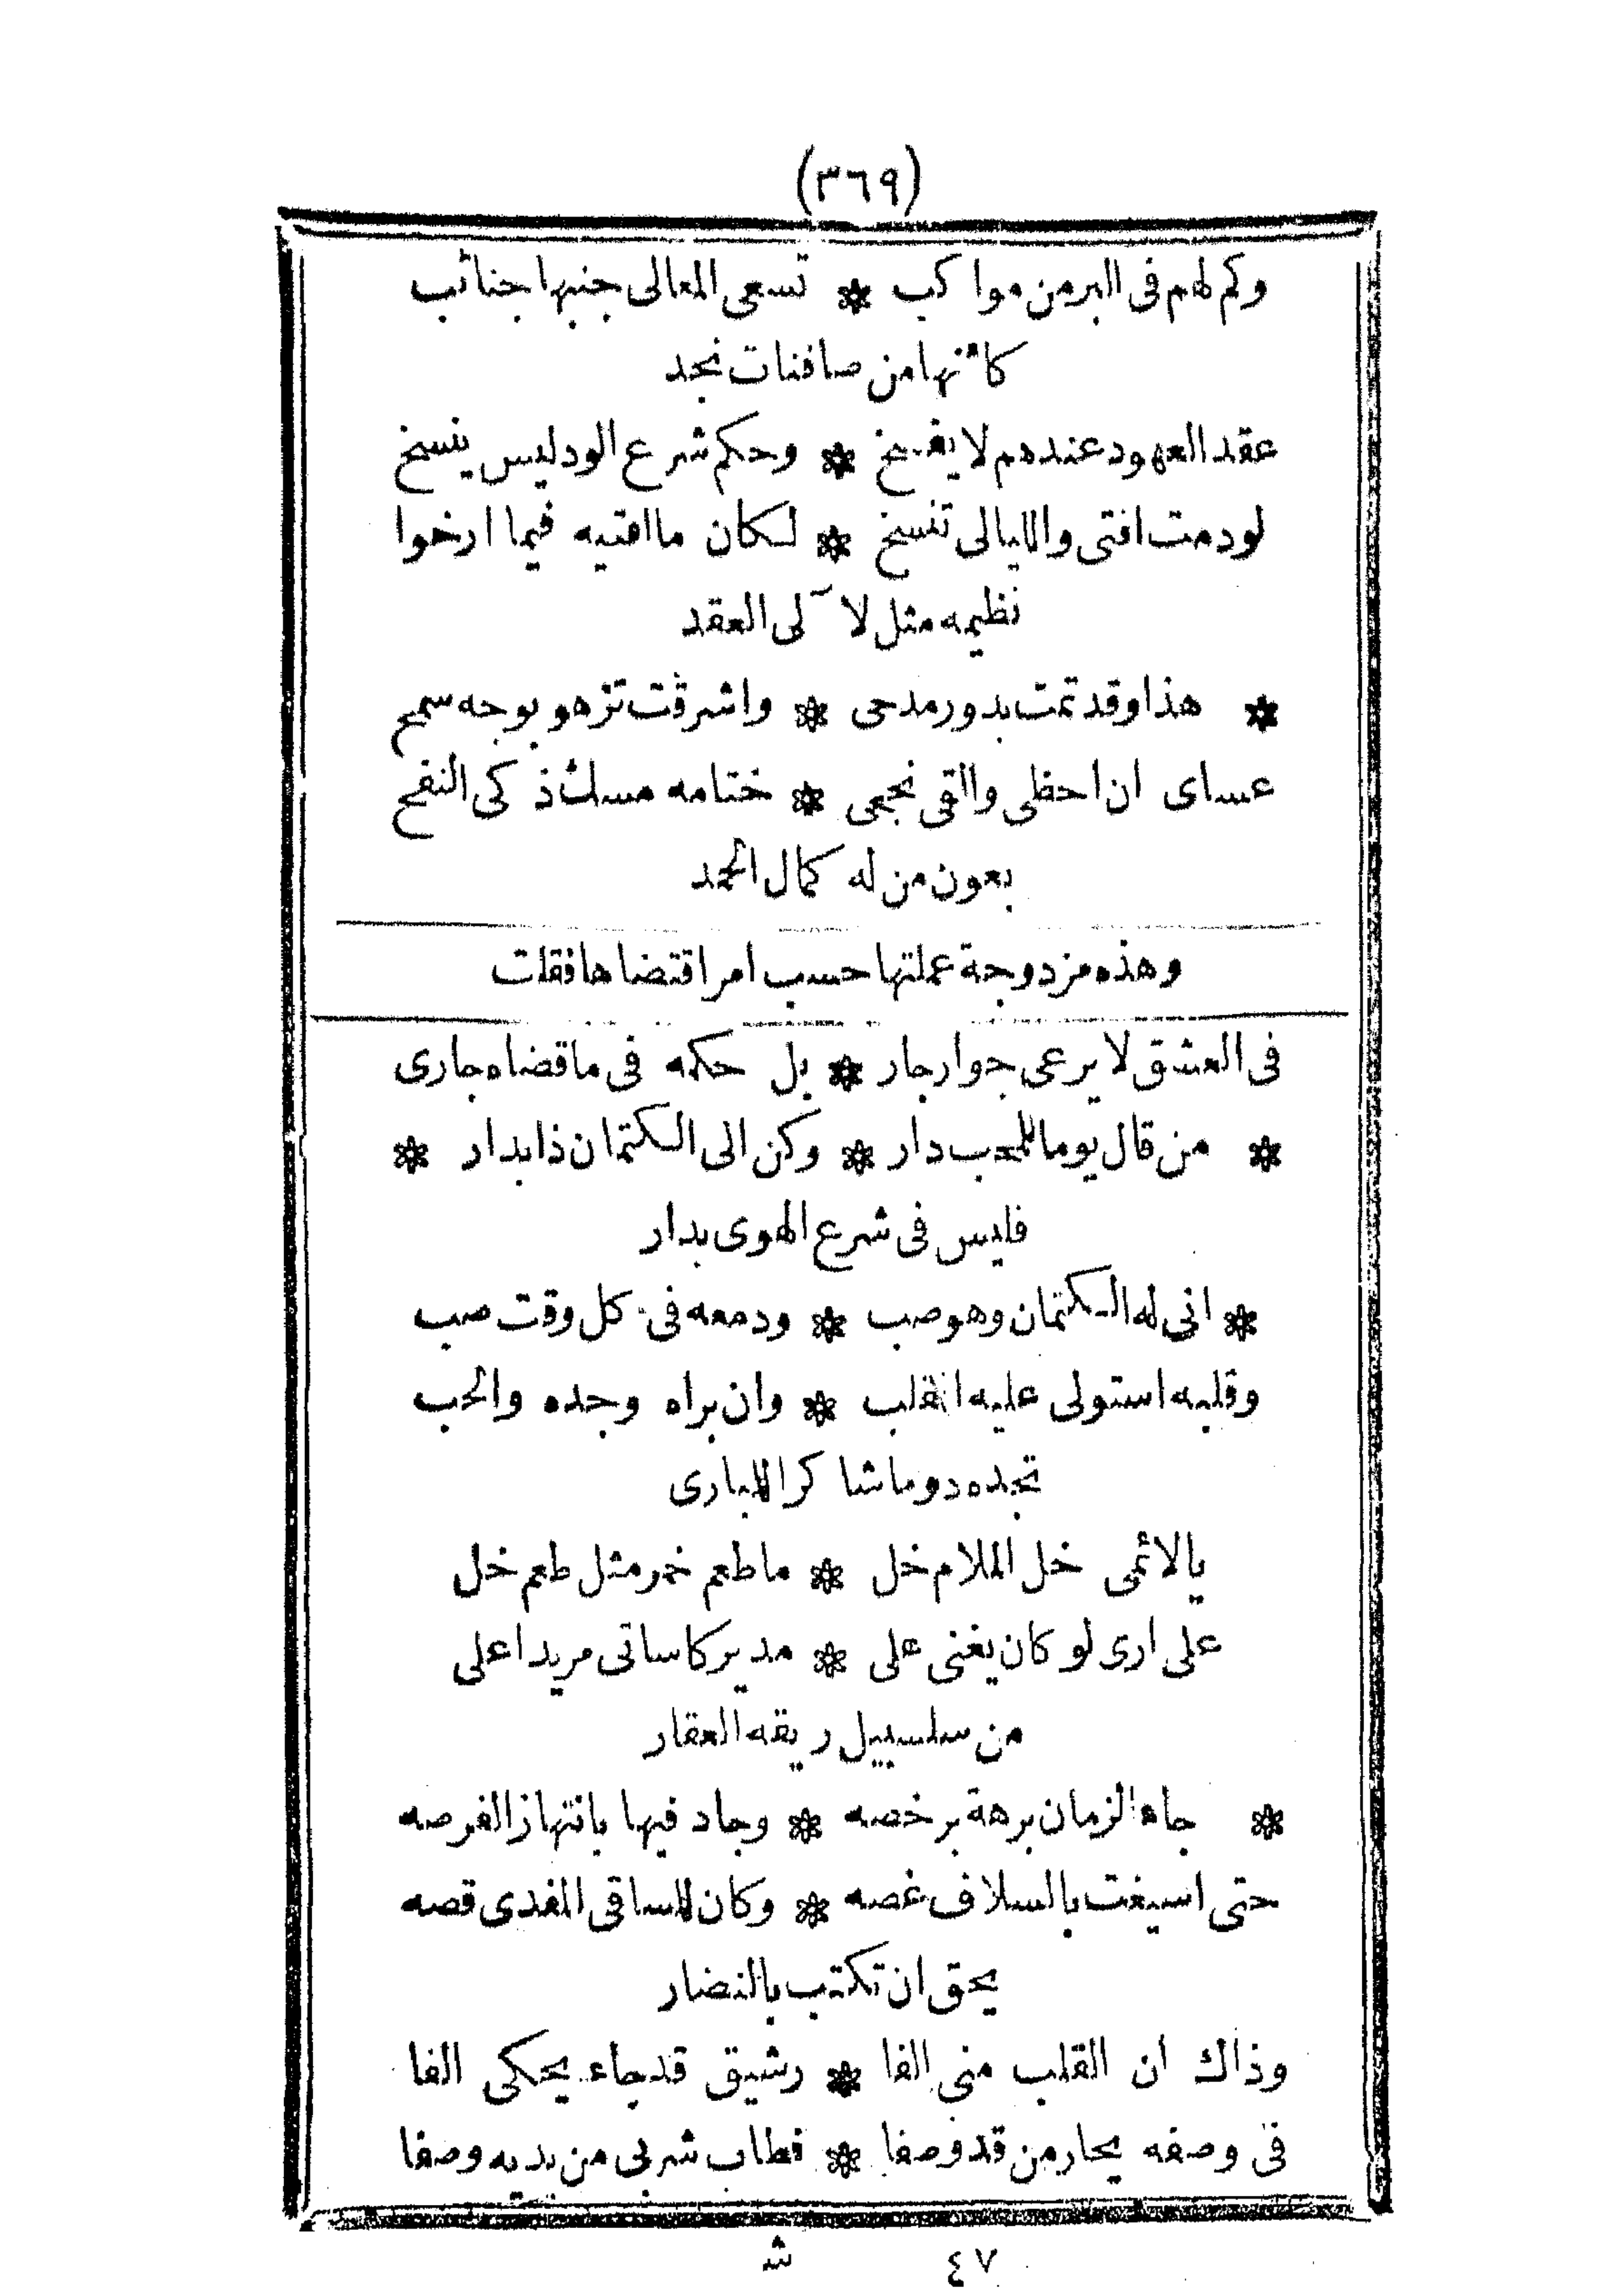 (٣٦٩)
وكم لهم فى البر من مواكب * تسعى المعالى جنبها جنائب
كأنها من صافنات نجد
عقد العهود عندهم لا يفسخ * وحكم شرع الود ليس ينسخ
لودمت افتى والليالى تنسخ * لكان ما افتيه فيما ارخوا
نظيمه مثل لآلى العقد
* هذا وقد تمت بدور مدحى * واشرقت تزهو بوجه سمح
عساى ان احظى والقى نجحى * ختامه مسك ذكى النفح
بعون من له كمال الحمد
وهذه مزدوجة عملتها حسب امر اقتضاها فقلت
فى العشق لا يرعى جوار جار * بل حكمه فى ما قضاه جارى
* من قال يوما للمحب دار * وكن الى الكتمان ذا بدار *
فليس فى شرع الهوى بدار
* انى له الكتمان وهو صب * ودمعه فى كل وقت صب
وقلبه استولى عليه القلب * وان براه وجده والحب
تجده دوما شاكرا للبارى
يا لائمى خل الملام خل * ما طعم خمر مثل طعم خل
على ارى لو كان يغنى على * مدير كاساتى مريدا على
من سلسبيل ريقه العقار
* جاء الزمان برهة برخصه * وجاد فيها بانتهاز الفرصه
حتى اسيغت بالسلاف غصه * وكان للساقى المفدى قصه
يحق ان تكتب بالنضار
وذاك ان القلب منى الفا * رشيق قد جاء يحكى الفا
فى وصفه يحار من قد وصفا * فطاب شربى من يديه وصفا
٤٧ ش